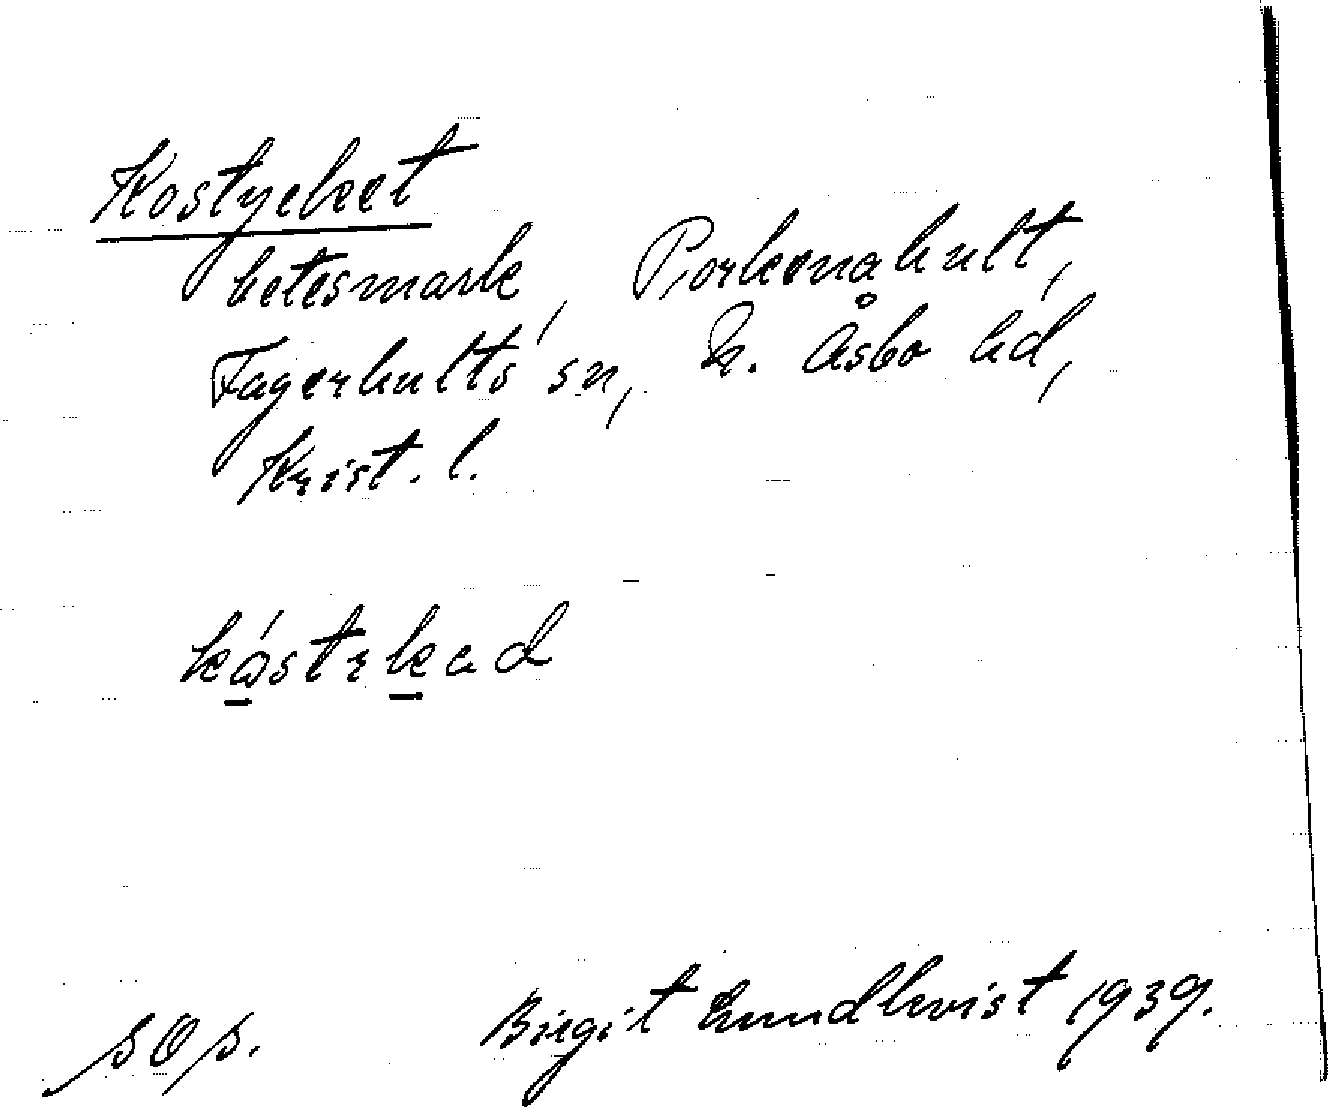 Kostycket
betesmark, Porkenahult,
Fagerhults sn, N. Åsbo hd,
Krist. l.
Birgit Lundkvist 1939.